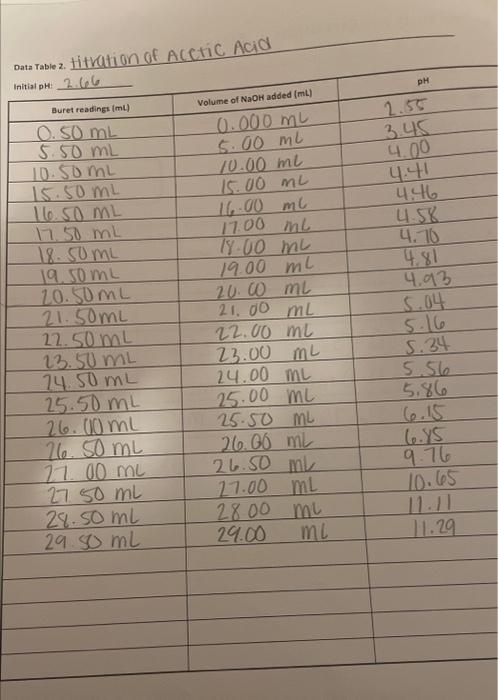 Data Table 2. titration of Acetic Acid
Initial pH: 2.66
Buret readings (mL) Volume of NaOH added (mL) pH
0.50 mL 0.000 mL 2.55
5.50 mL 5.00 mL 3.45
10.50 mL 10.00 mL 4.00
15.50 mL 15.00 mL 4.41
16.50 mL 16.00 mL 4.46
17.50 mL 17.00 mL 4.58
18.50 mL 18.00 mL 4.70
19.50 mL 19.00 mL 4.81
20.50 mL 20.00 mL 4.93
21.50 mL 21.00 mL 5.04
22.50 mL 22.00 mL 5.16
23.50 mL 23.00 mL 5.34
24.50 mL 24.00 mL 5.56
25.50 mL 25.00 mL 5.86
26.00 mL 25.50 mL 6.15
26.50 mL 26.00 mL 6.85
27.00 mL 26.50 mL 9.76
27.50 mL 27.00 mL 10.65
28.50 mL 28.00 mL 11.11
29.50 mL 29.00 mL 11.29